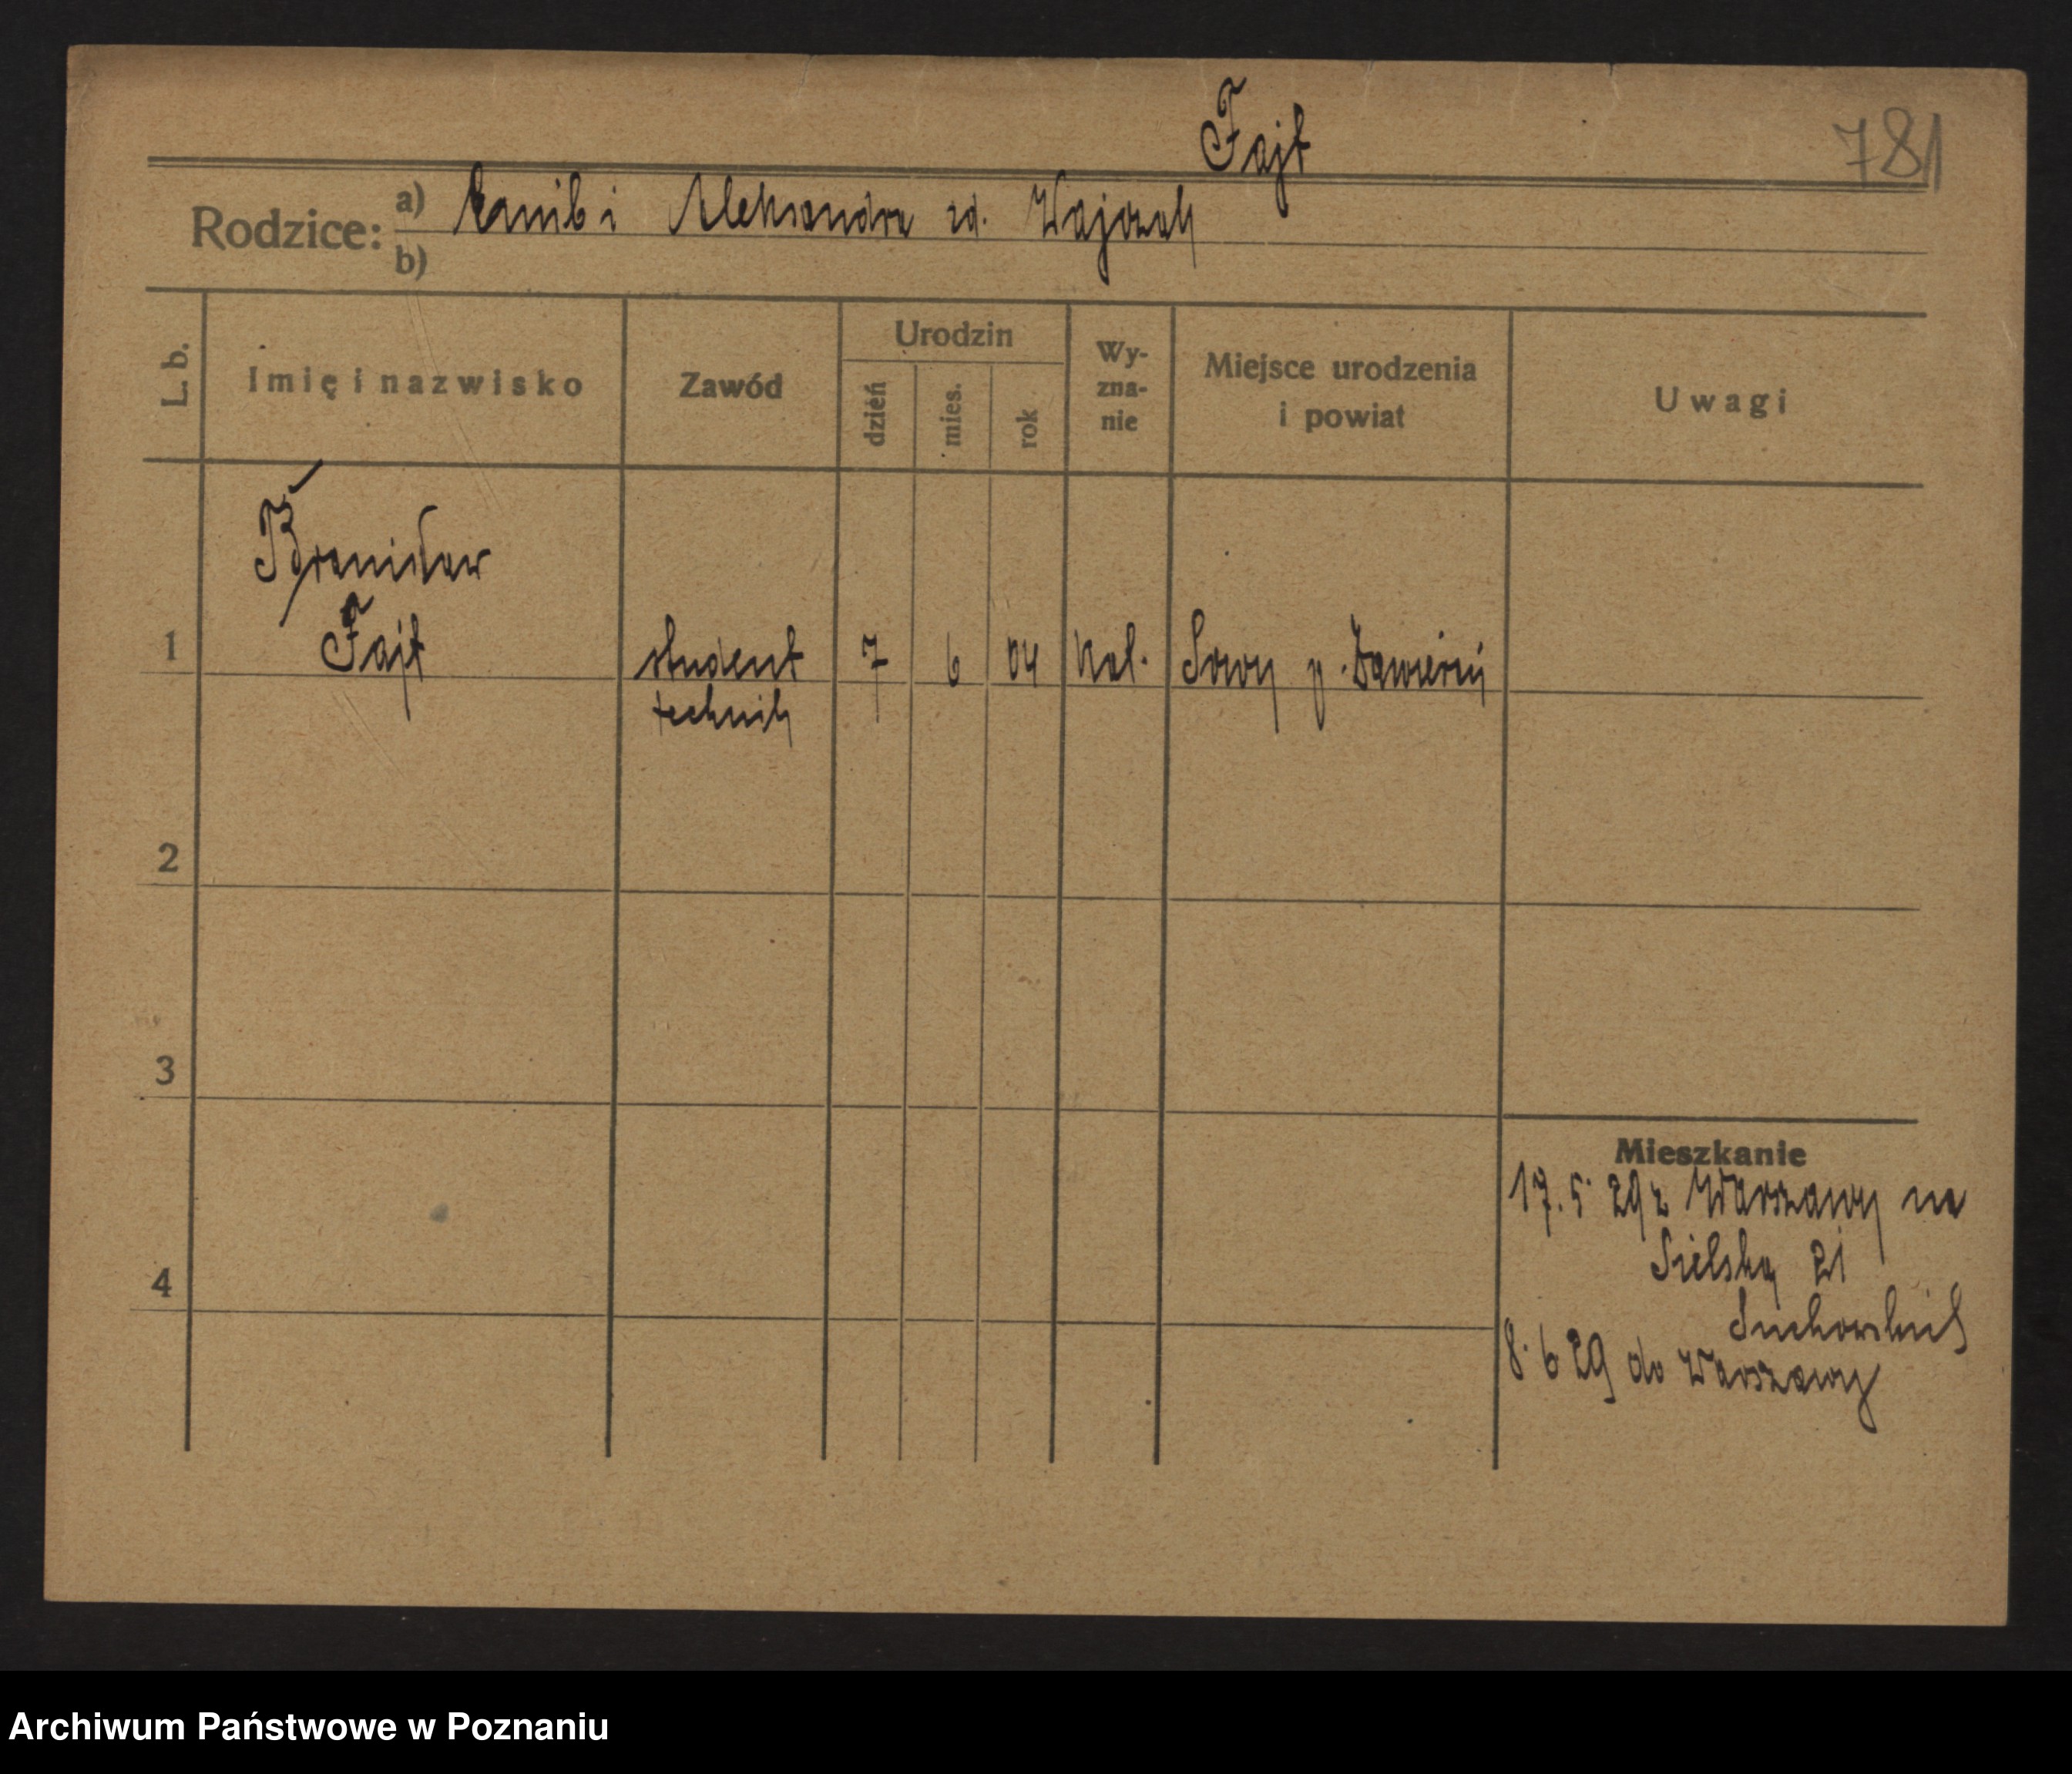 Fajt
781
Rodzice: a) Emil i Aleksandra zd. Wajzak
b)
L. b.
Imię i nazwisko
Zawód
Urodzin
dzień
mies.
rok
Wy-
zna-
nie
Miejsce urodzenia
i powiat
Uwagi
Bronisław
1 Fajt student 7 6 04 kat. Sowy p. Zawierci
technik
2
3
Mieszkanie
17.5 29 z Warszawy na
Sielską 21
4
Suchorskich
8. 6 29 do Warszawy
Archiwum Państwowe w Poznaniu